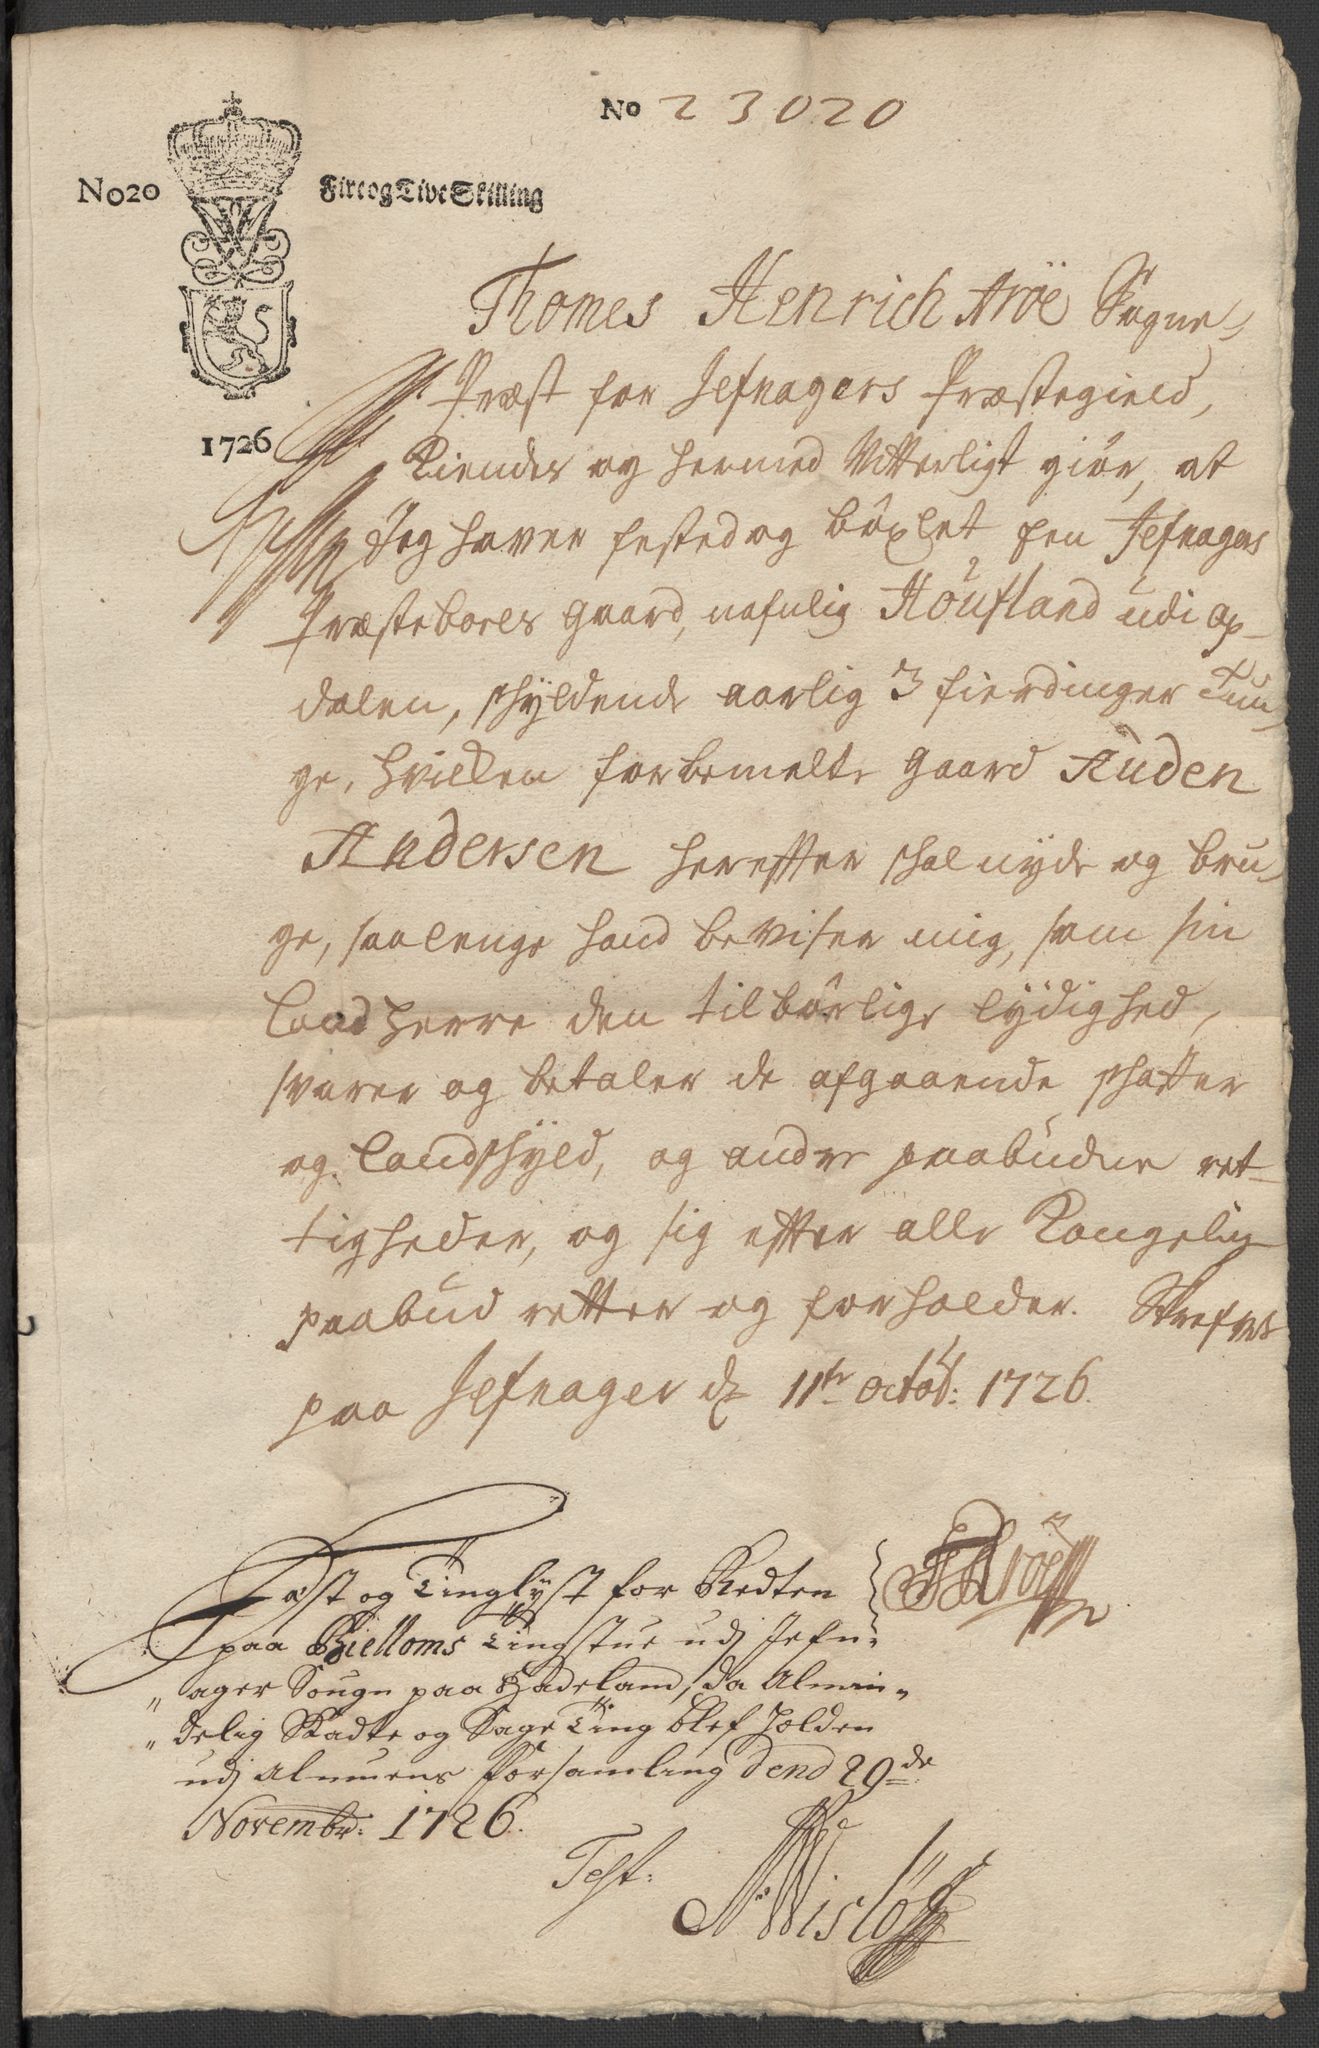 No 23020
No20
Fire og Tive Skilling
1726
Thomes Henrich Aröe Sogne-
Præst for Jefnagers Præstegield,
Kiendes og hermed Vitterligt giör, at
Jeg haver fested og böxlet een Jefnagers
Præsteboels gaard, nafnlig Höufland udi op-
dalen, schÿldende aarlig 3 fierdinger Tun-
ge, hvilken forbemelte gaard Auden
Andersen herefter schal nyde og bru-
ge, saalenge hand beviser mig, som sin
Landherre den tilbörlige lÿdighed,
svarer og betaler de afgaaende schatter
og Landschÿld, og andre paabudne ret-
tigheder, og sig efter alle Kongelig
paabud retter og forholder. Skrefvet
paa Jefnager d. 11te octob: 1726.
THAröe
Læst og Tinglÿst for Redten
paa Bielloms Tingstue udj Jefn-
ager Sougn paa Hadeland, da Almin-
delig Skadte og Sage Ting blef holden
udj Almuens Forsamling dend 29de
Novembr: 1726.
Test:
N: Wislöff